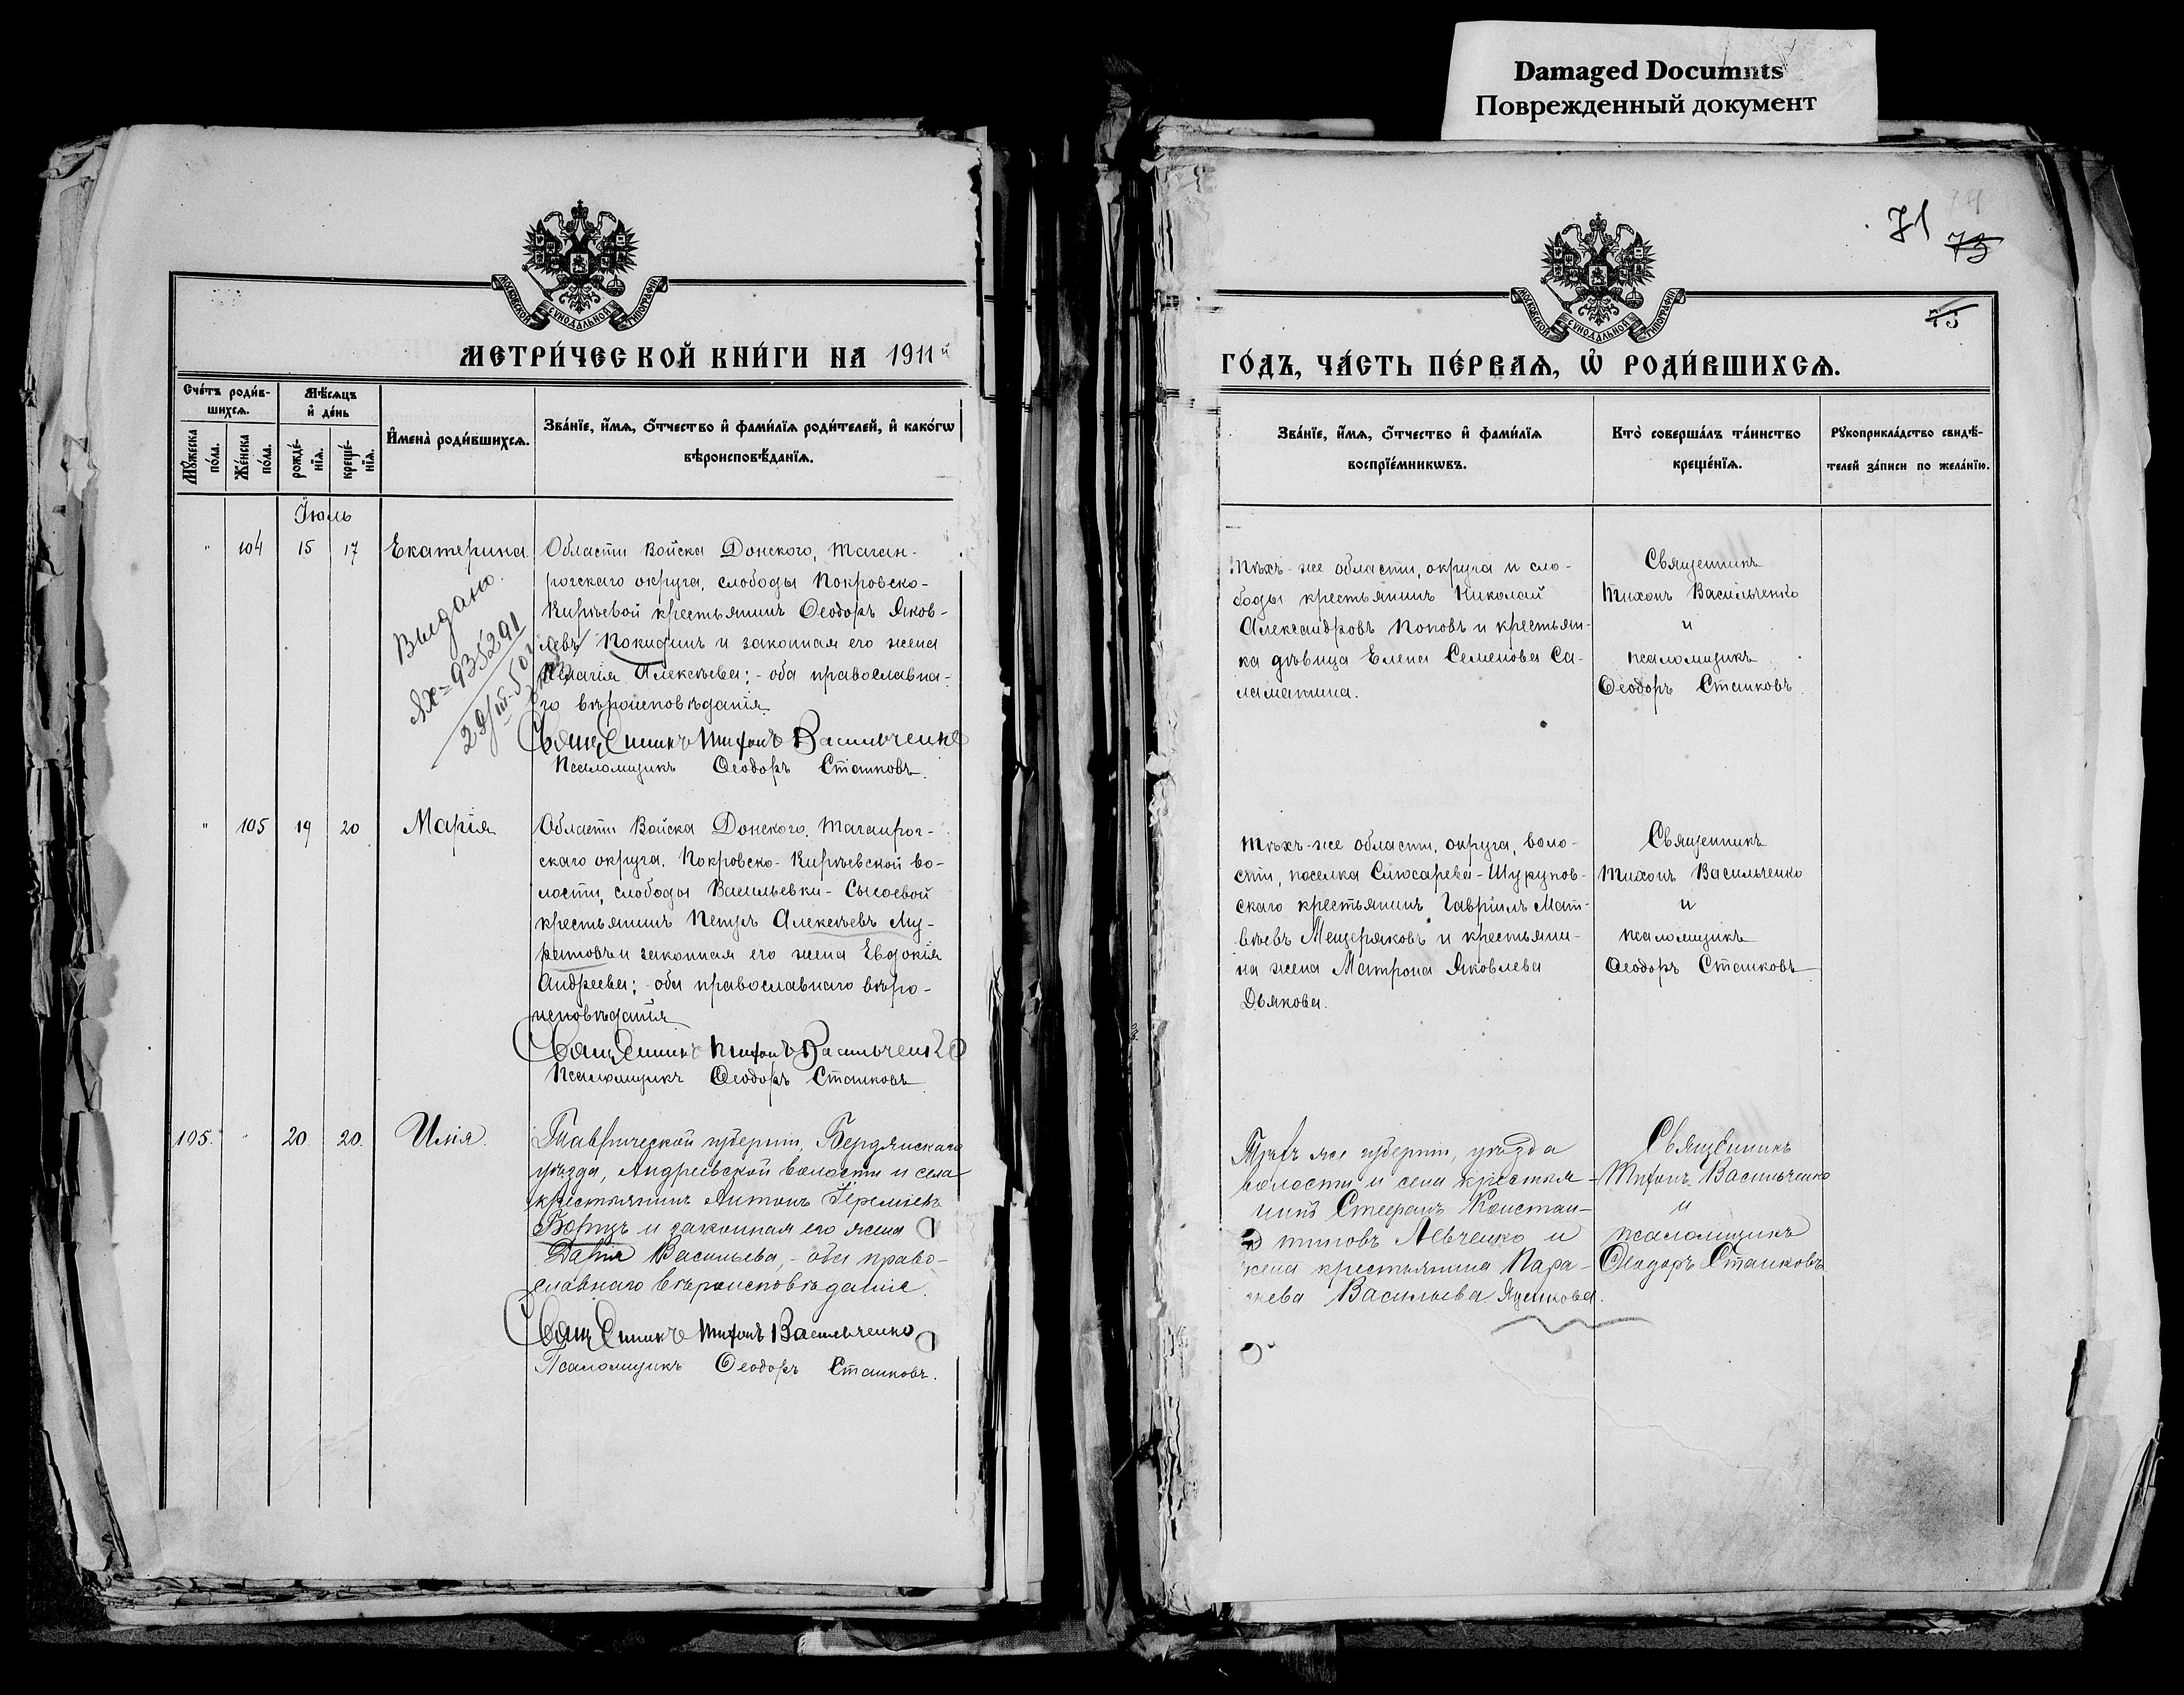 Damaged Documnts
Поврежденный документ
71
73
75
МОСКОВСКОЙ СѴНОДАЛЬНОЙ ТИПОГРАФІИ
МОСКОВСКОЙ СѴНОДАЛЬНОЙ ТИПОГРАФІИ
МЕТРИ́ЧЕСКОЙ КНИ́ГИ НА 1911й
ГО́ДЪ, ЧА́СТЬ ПЕ́РВАѦ, Ѡ҆ РОДИ́ВШИХСѦ.
Сче́тъ роди́в-
шихсѧ.
Мꙋ́жеска по́ла.
Же́нска по́ла.
Мѣ́сѧцъ
и҆ де́нь
рожде́-
нїѧ.
креще́-
нїѧ.
И҆мена̀ роди́вшихсѧ.
Зва́нїе, и҆́мѧ, ѻ҆́тчество и҆ фами́лїѧ роди́телей, и҆ како́гѡ
вѣроисповѣ́данїѧ.
Зва́нїе, и҆́мѧ, ѻ҆́тчество и҆ фами́лїѧ
воспрїе́мникѡвъ.
Кто̀ соверша́лъ та́инство
креще́нїѧ.
Рꙋкоприкла́дство свидѣ́-
телей за́писи по жела́нїю.
Іюль
" 104 15 17 Екатерина.
Области Войска Донского, Таган-
рогскаго округа, слободы Покровско-
Кирѣевой крестьянинъ Ѳеодоръ Яков-
левъ Покидинъ и законная его жена
Пелагія Алексѣева; - оба православна-
го вѣроисповѣданія.
Священникъ Тихонъ Васильченко
Псаломщикъ Ѳеодоръ Станковъ.
Выдано
935291
Тѣхъ-же области, округа и сло-
боды крестьянинъ Николай
Александровъ Поповъ и крестьян-
ка дѣвица Елена Семенова Са-
ламатина.
Священникъ
Тихонъ Васильченко
и
псаломщикъ
Ѳеодоръ Станковъ
" 105 19 20 Марія
Области Войска Донского, Таганрог-
скаго округа, Покровско-Кирѣевской во-
лости, слободы Васильевки-Сысоевой
крестьянинъ Петръ Алексѣевъ Му-
ратовъ и законная его жена Евдокія
Андреева; - оба православнаго вѣро-
исповѣданія
Священникъ Тихонъ Васильченко
Псаломщикъ Ѳеодоръ Станковъ
Тѣхъ-же области, округа, воло-
сти, поселка Слюсарева-Шукунов-
скаго крестьянинъ Гавріилъ Мат-
вѣевъ Мещеряковъ и крестьяни-
на жена Матрона Яковлева
Дьякова.
Священникъ
Тихонъ Васильченко
и
псаломщикъ
Ѳеодоръ Станковъ
105. " 20 20. Илія.
Таврической губерніи, Бердянскаго
уѣзда, Андреевской волости и села
крестьянинъ Антонъ Іереміевъ
и законная его жена
Дарія Васильева, - оба право-
славнаго вѣроисповѣданія.
Священникъ Тихонъ Васильченко
Псаломщикъ Ѳеодоръ Станковъ.
Тѣхъ же губерніи, уѣзда
волости и села крестья-
нинъ Стефанъ Констан-
тиновъ Левченко и
жена крестьянина Пара-
скева Васильева Яценкова.
Священникъ
Тихонъ Васильченко
и
псаломщикъ
Ѳеодоръ Станковъ